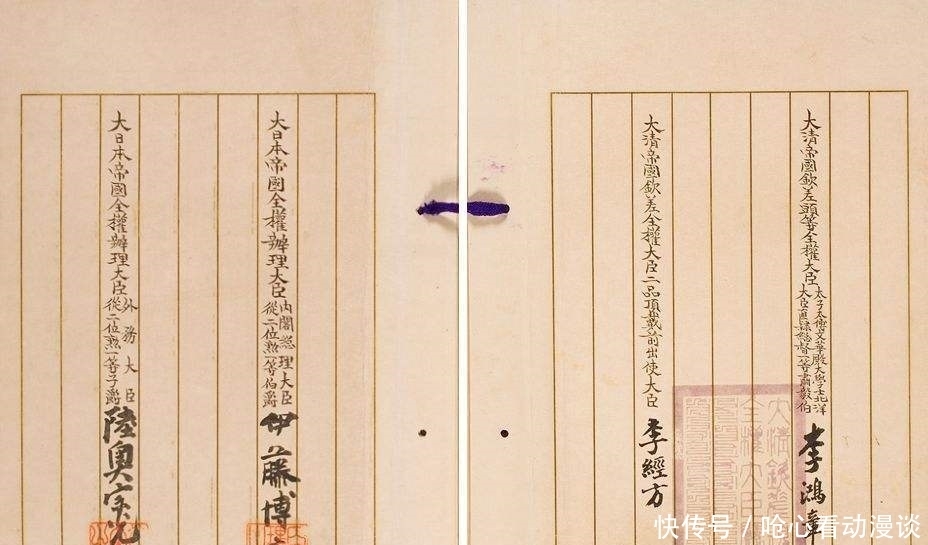 大清帝國欽差頭等全權大臣
太子太傅文華殿大學士北洋
大臣直隸總督一等肅毅伯
李鴻章
大清帝國欽差全權大臣二品頂戴前出使大臣
李經方
大日本帝國全權辦理大臣
內閣總理大臣
從二位勳一等伯爵
伊藤博
大日本帝國全權辦理大臣
外務大臣
從二位勳一等子爵
陸奧宗光
快传号 / 呛心看动漫谈